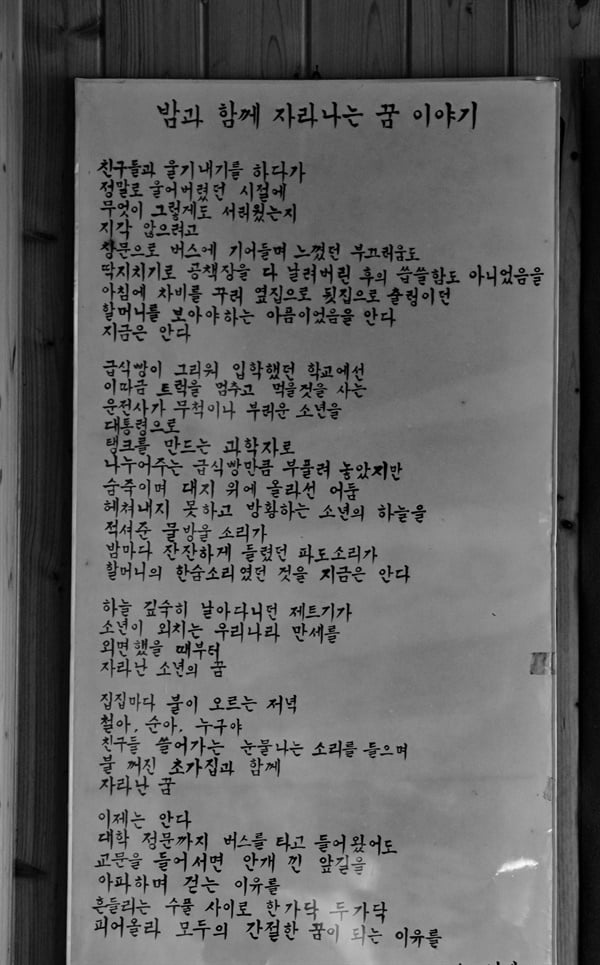 밤과 함께 자라나는 꿈 이야기
친구들과 울기내기를 하다가
정말로 울어버렸던 시절에
무엇이 그렇게도 서러웠는지
지각 않으려고
창문으로 버스에 기어들며 느꼈던 부끄러움도
딱지치기로 공책장을 다 날려버린 후의 씁쓸함도 아니었음을
아침에 차비를 꾸러 옆집으로 뒷집으로 출렁이던
할머니를 보아야하는 아픔이었음을 안다
지금은 안다
급식빵이 그리워 입학했던 학교에선
이따금 트럭을 멈추고 먹을것을 사는
운전사가 무척이나 부러운 소년을
대통령으로
탱크를 만드는 과학자로
나누어주는 급식빵만큼 부풀려 놓았지만
숨죽이며 대지 위에 올라선 어둠
헤쳐내지 못하고 방황하는 소년의 하늘을
적셔준 물방울 소리가
밤마다 잔잔하게 들렸던 파도소리가
할머니의 한숨소리였던 것을 지금은 안다
하늘 깊숙히 날아다니던 제트기가
소년이 외치는 우리나라 만세를
외면했을 때부터
자라난 소년의 꿈
집집마다 불이 오르는 저녁
철아, 순아, 누구야
친구들 쓸어가는 눈물나는 소리를 들으며
불 꺼진 초가집과 함께
자라난 꿈
이제는 안다
대학 정문까지 버스를 타고 들어왔어도
교문을 들어서면 안개 낀 앞길을
아파하며 걷는 이유를
흔들리는 수풀 사이로 한가닥 두가닥
피어올라 모두의 간절한 꿈이 되는 이유를